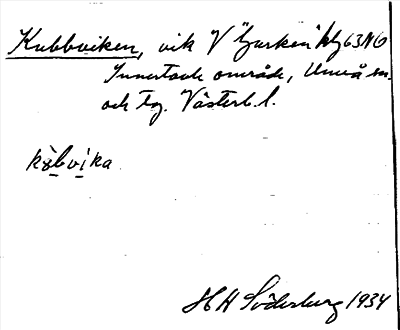 Kubbviken, vik V "Gurken" blg 63 NO
Innertavle område, Umeå sn.
och tg. Västerb. l.
kòbvika
H H Söderburg 1934